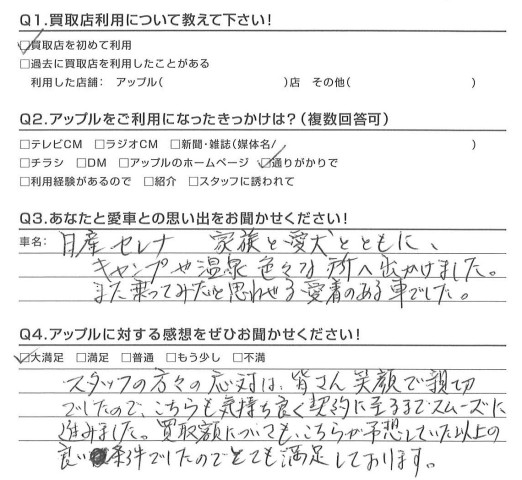 Q1.買取店利用について教えて下さい!
☑買取店を初めて利用
□過去に買取店を利用したことがある
利用した店舗: アップル( )店 その他( )
Q2.アップルをご利用になったきっかけは?(複数回答可)
□テレビCM □ラジオCM □新聞・雑誌(媒体名/ )
□チラシ □DM □アップルのホームページ ☑通りがかりで
□利用経験があるので □紹介 □スタッフに誘われて
Q3.あなたと愛車との思い出をお聞かせください!
車名: 日産セレナ 家族と愛犬とともに、
キャンプや温泉色々な所へ出かけました。
また乗ってみたと思わせる愛着のある車でした。
Q4.アップルに対する感想をぜひお聞かせください!
☑大満足 □満足 □普通 □もう少し □不満
スタッフの方々の応対は、皆さん笑顔で親切
でしたので、こちらも気持ち良く契約に至るまでスムーズに
進みました。買取額についても、こちらが予想していた以上の
良い条件でしたのでとても満足しております。